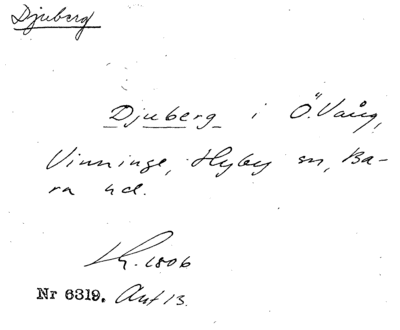 Djuberg
Djuberg i Ö. Vång,
Vinninge, Hyby sn, Ba-
ra hd.
Lh. 1806
Nr 6319. Avt 13.